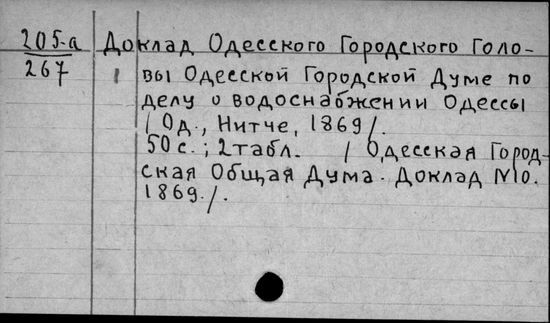 205-а Доклад Одесского Городского Голо-
267 вы Одесской Городской Думе по
делу о водоснабжении Одессы
/ Од., Нитче, 1869/.
50 с.; 2 табл. / Одесская Город-
ская Общая Дума. Доклад №0.
1869./.